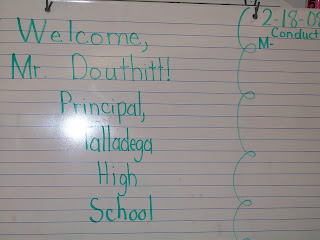 Welcome,
Mr. Douthitt!
Principal,
Talladega
High
School
2-18-08
Conduct
M-